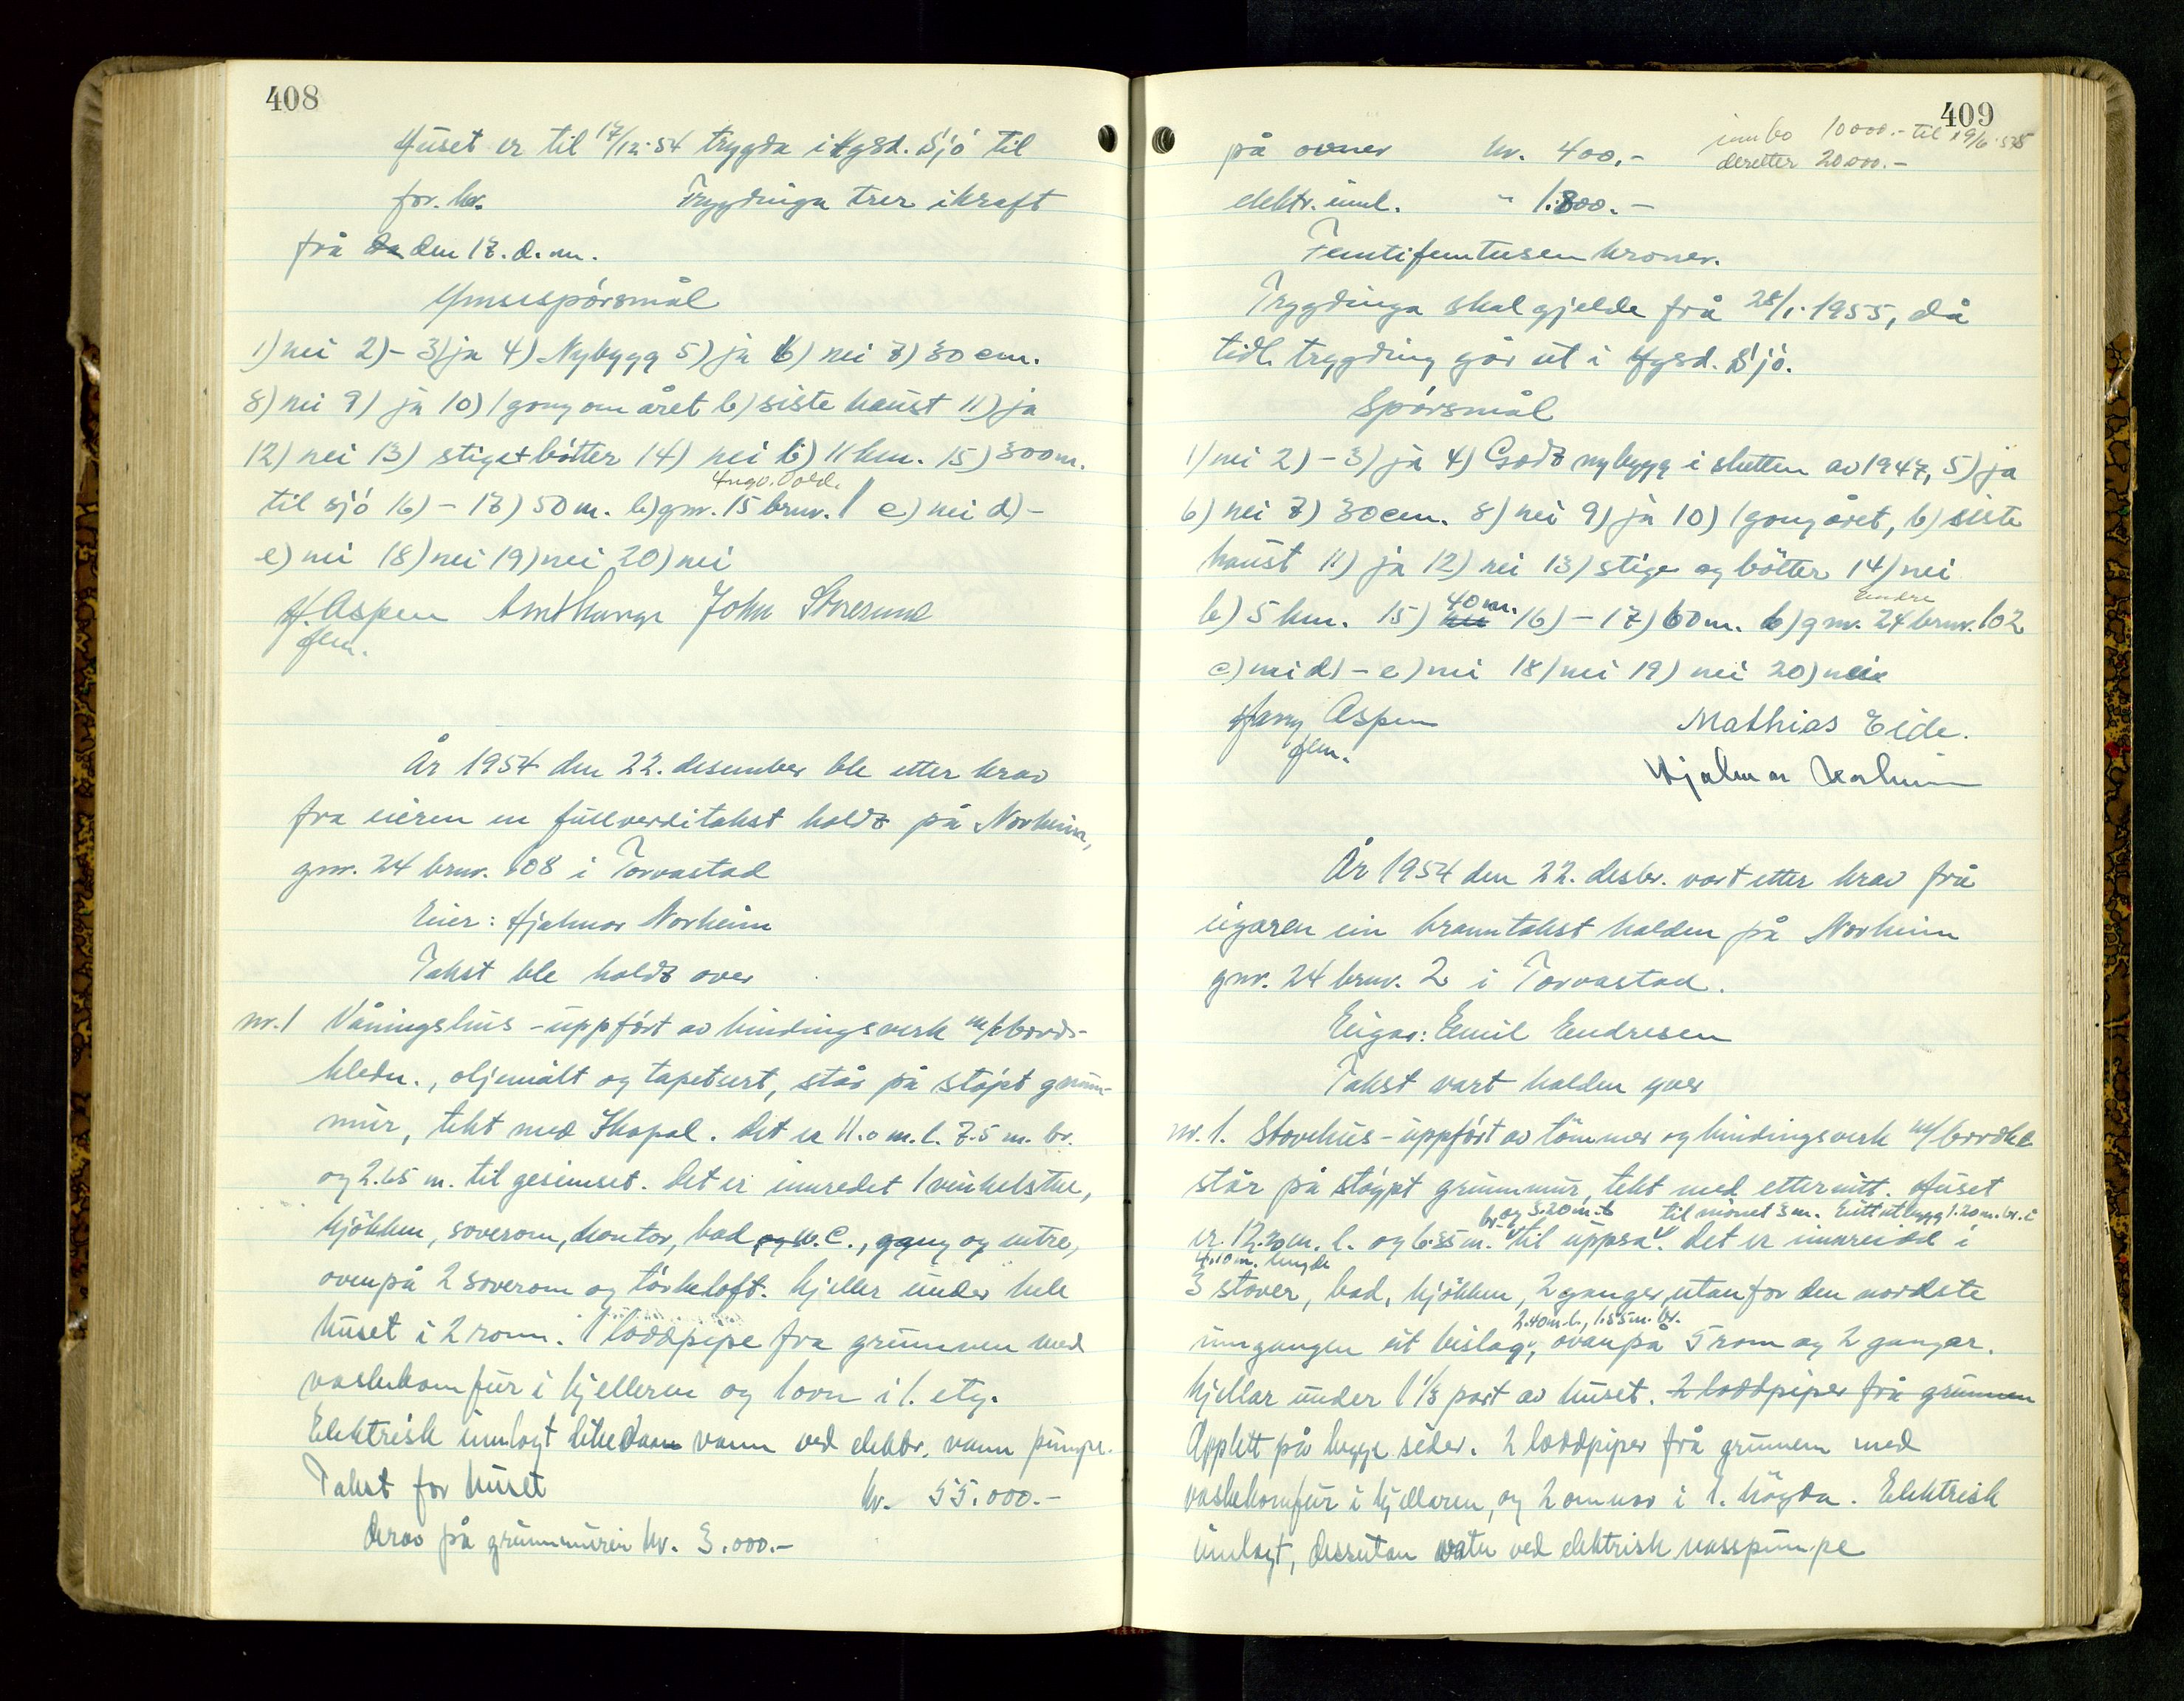 408
Huset er til 17/12.54 trygda i Hgsd. Sjó til
for. kr. Trygdinga trer i kraft
frå da den 17. d. m.
Ymse spórsmål
1) nei 2) - 3) ja 4) Nybygg 5) ja 6) nei 7) 30 cm.
8) nei 9) ja 10) 1 gong om året b) siste haust 11) ja
12) nei 13) stige + bótter 14) nei b) 11 km. 15) 300 m.
til sjó 16) - 17) 50 m. b) gnr. 15 bruv. 1 c) nei d) -
e) nei 18) nei 19) nei 20) nei
H. Aspen John Storesund
fm.
År 1954 den 22. desember ble etter krav
fra eieren en fullverditakst holdt på Norheim,
gnr. 24 bruv. 108 i Torvastad
Eier: Hjalmar Norheim
Takst ble holdt over
nr. 1 Våningshus - uppfórt av bindingsverk m/ bords-
kledn., oljemålt og tapetsert, står på stópt grunn-
mur, tekt med Skapal. Det er 11.0 m. l. 7.5 m. br.
og 2.65 m. til gesimset. Det er innredet 1 vinkelstue,
kjókken, soverom, kontor, bad og w.c., gang og entre,
ovenpå 2 soverom og tórkeloft. Kjeller under hele
huset i 2 rom. 1 loddpipe fra grunnen med
vaskekomfur i kjelleren og 1 ovn i 1. etg.
Elektrisk innlagt likedan vann ved elektr. vann pumpe.
Takst for huset kr. 55.000.-
derav på grunnmuren kr. 3.000.-
409
innbo 10000.- til 19/6.55
deretter 20000.-
på ovner kr. 400.-
elektr. innl. " 1.800.-
Femtifemtusen kroner.
Trygdinga skal gjelde frå 28/1.1955, då
tidl. trygding går ut i Hgsd. Sjó.
Spórsmål
1) nei 2) - 3) ja 4) Godt nybygg i slutten av 1947, 5) ja
6) nei 7) 30 cm. 8) nei 9) ja 10) 1 gong året, b) siste
haust 11) ja 12) nei 13) stige og bótter 14) nei
Endre
b) 5 km. 15) 40 m. 16) - 17) 60 m. b) gnr. 24 bruv. 102
c) nei d) - e) nei 18) nei 19) nei 20) nei
Harry Aspen Mathias Eide.
fm.
Hjalmar
År 1954 den 22. desbr. vart etter krav frå
eigaren ein branntakst halden på Norheim
gnr. 24 bruv. 2 i Torvastad.
Eigar: Emil Endresen
Takst vart halden yver
nr. 1. Stovehus - uppfórt av tómmer og bindingsverk m/ bordkl
står på stóypt grunnmur, tekt med etternitt. Huset
br. og 3.20 m. til mónet 3 m. Eitt utbygg 1.20 m. br. i
er 12.20 m. l. og 6.85 m. til uppsa. Det er innreidd i
4.10 m. lengde
3 stover, bad, kjókken, 2 ganger, utanfor den nordste
2.40 m. l., 1.55 m. br.
inngangen eit bislag, ovanpå 5 rom og 2 gangar.
Kjellar under 1 1/3 part av huset. 2 loddpiper frå grunnen
Applett på begge sider. 2 loddpiper frå grunnen med
vaskekomfur i kjellaren, og 2 omnar i 1. hógda. Elektrisk
innlagt, dessutan vatn ved elektrisk vasspumpe